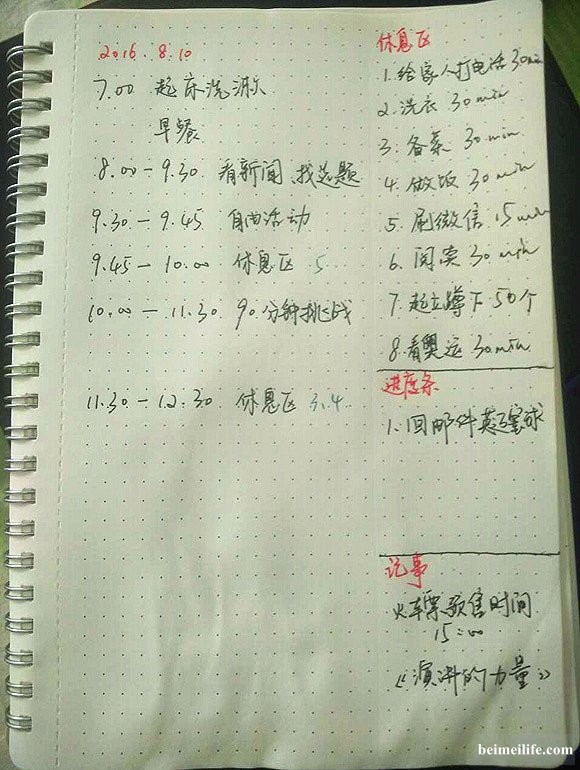 2016.8.10
7.00 起床洗漱
早餐
8.00-9.30 看新闻、找选题
9.30-9.45 自由活动
9.45-10.00 休息区 5
10.00-11.30 90分钟挑战
11.30-12.30 休息区 3.4
休息区
1.给家人打电话30min
2.洗衣 30min
3.备菜 30min
4.做饭 30min
5.刷微信 15min
6.阅读 30min
7.起立蹲下 50个
8.看奥运 30min
进度条
1.回邮件
记事
火车票预售时间
15:00
《演讲的力量》
beimeilife.com